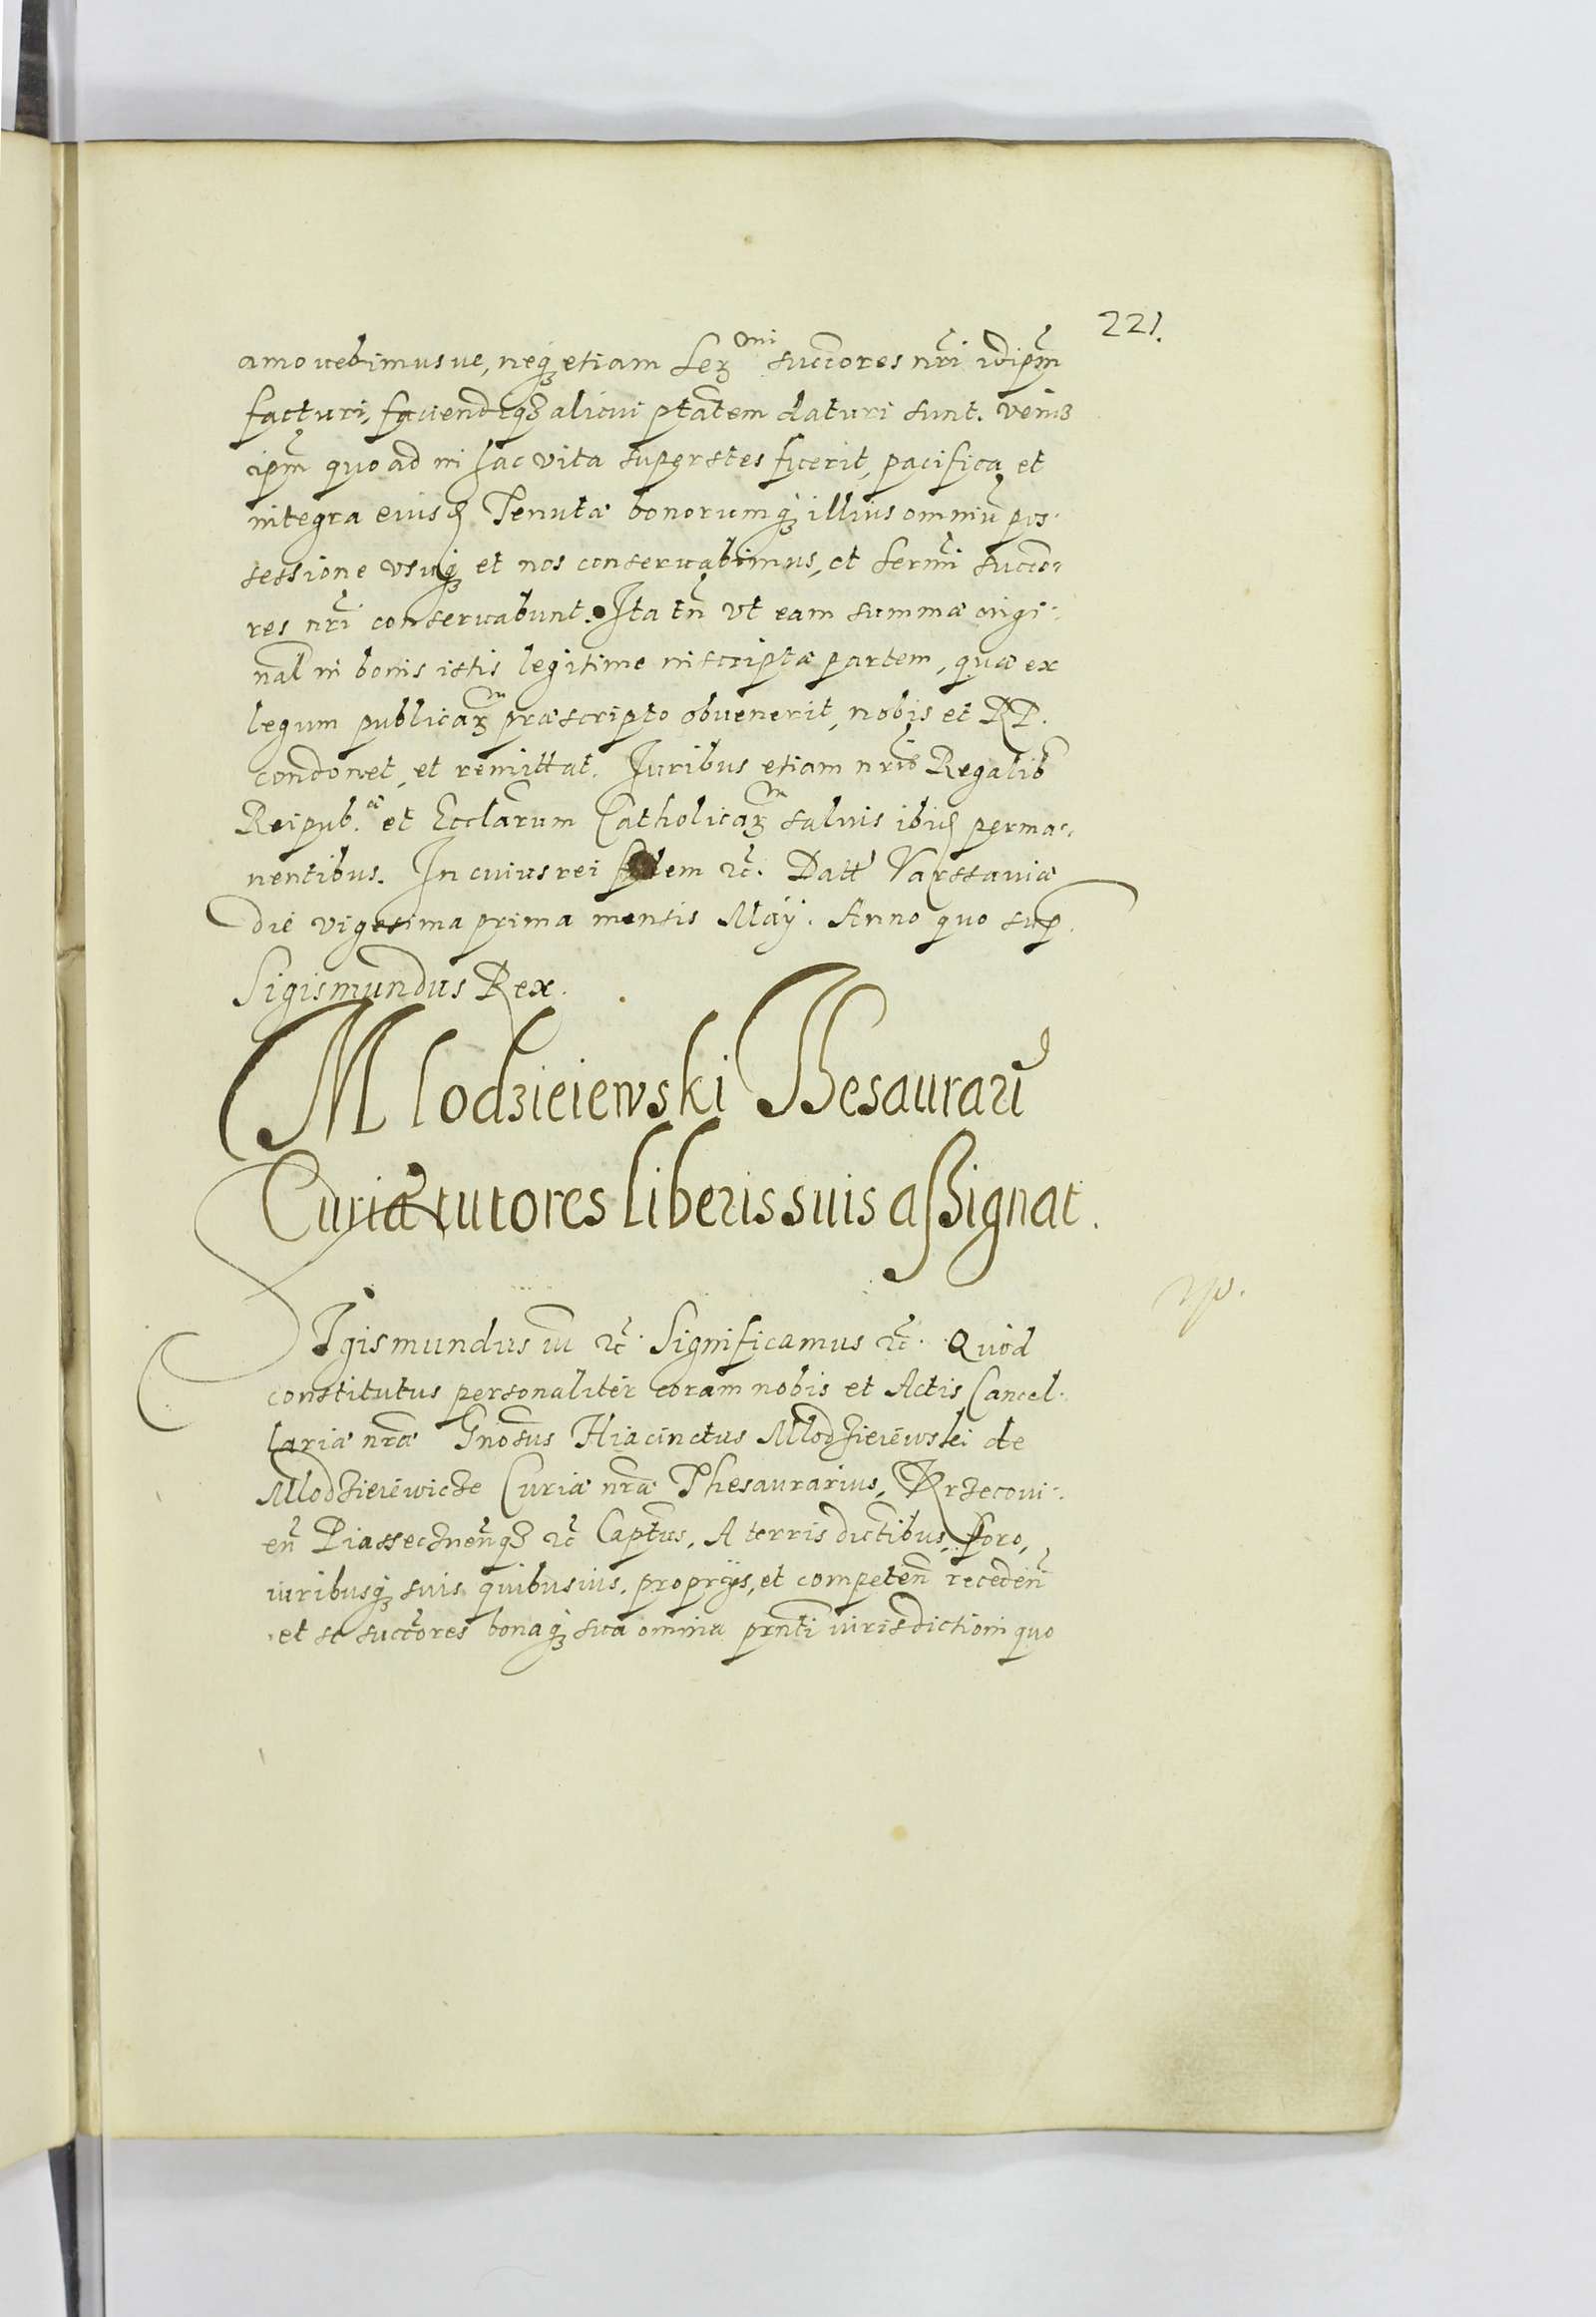 221.
amovebimusve, neq₃ etiam Ser₃mi succores nr̃i idipm̃
facturi, faciendiq₃ alicui ptãtem daturi sunt. verũ
ipm̃ quoad in hac vita superstes fuerit, pacifica et
integra eiusđ Tenutæ bonorumq₃ illius omniũ pos-
sessione usuq₃ et nos conservabimus, et Sermi succo-
res nr̃i conservabunt. Ita tñ ut eam summæ origi-
nal in bonis istis legitime inscriptæ partem, quæ ex
legum publicar₃m præscripto obvenerit, nobis et RP.
condonet, et remittat. Juribus etiam nr̃is Regalib̃
Reipub.cæ et Ecclãrum Catholicar₃m salvis ibiđ perma-
nentibus. In cuius rei fidem &c. Datt Varssaviæ
die vigesima prima mensis Maÿ. Anno quo sup.
Sigismundus Rex.
Mlodzieiewski Thesaurari9
Curiæ tutores liberis suis assignat.
Sigismundus iii &c. Significamus &c. Quod
constitutus personaliter coram nobis et Actis Cancel-
lariæ nr̃æ Gnõsus Hiacinctus Mlodzieiewski de
Mlodzieiewicze Curiæ nr̃æ Thesaurarius, Krzecovi-
eñ Piasseczneñq₃ &c Captus, A terris dictibus, foro,
iuribusq₃ suis quibusvis, proprijs, et competeñ recedeñ
et se succores bonaq₃ sua omnia prñti iurisdictioni quo